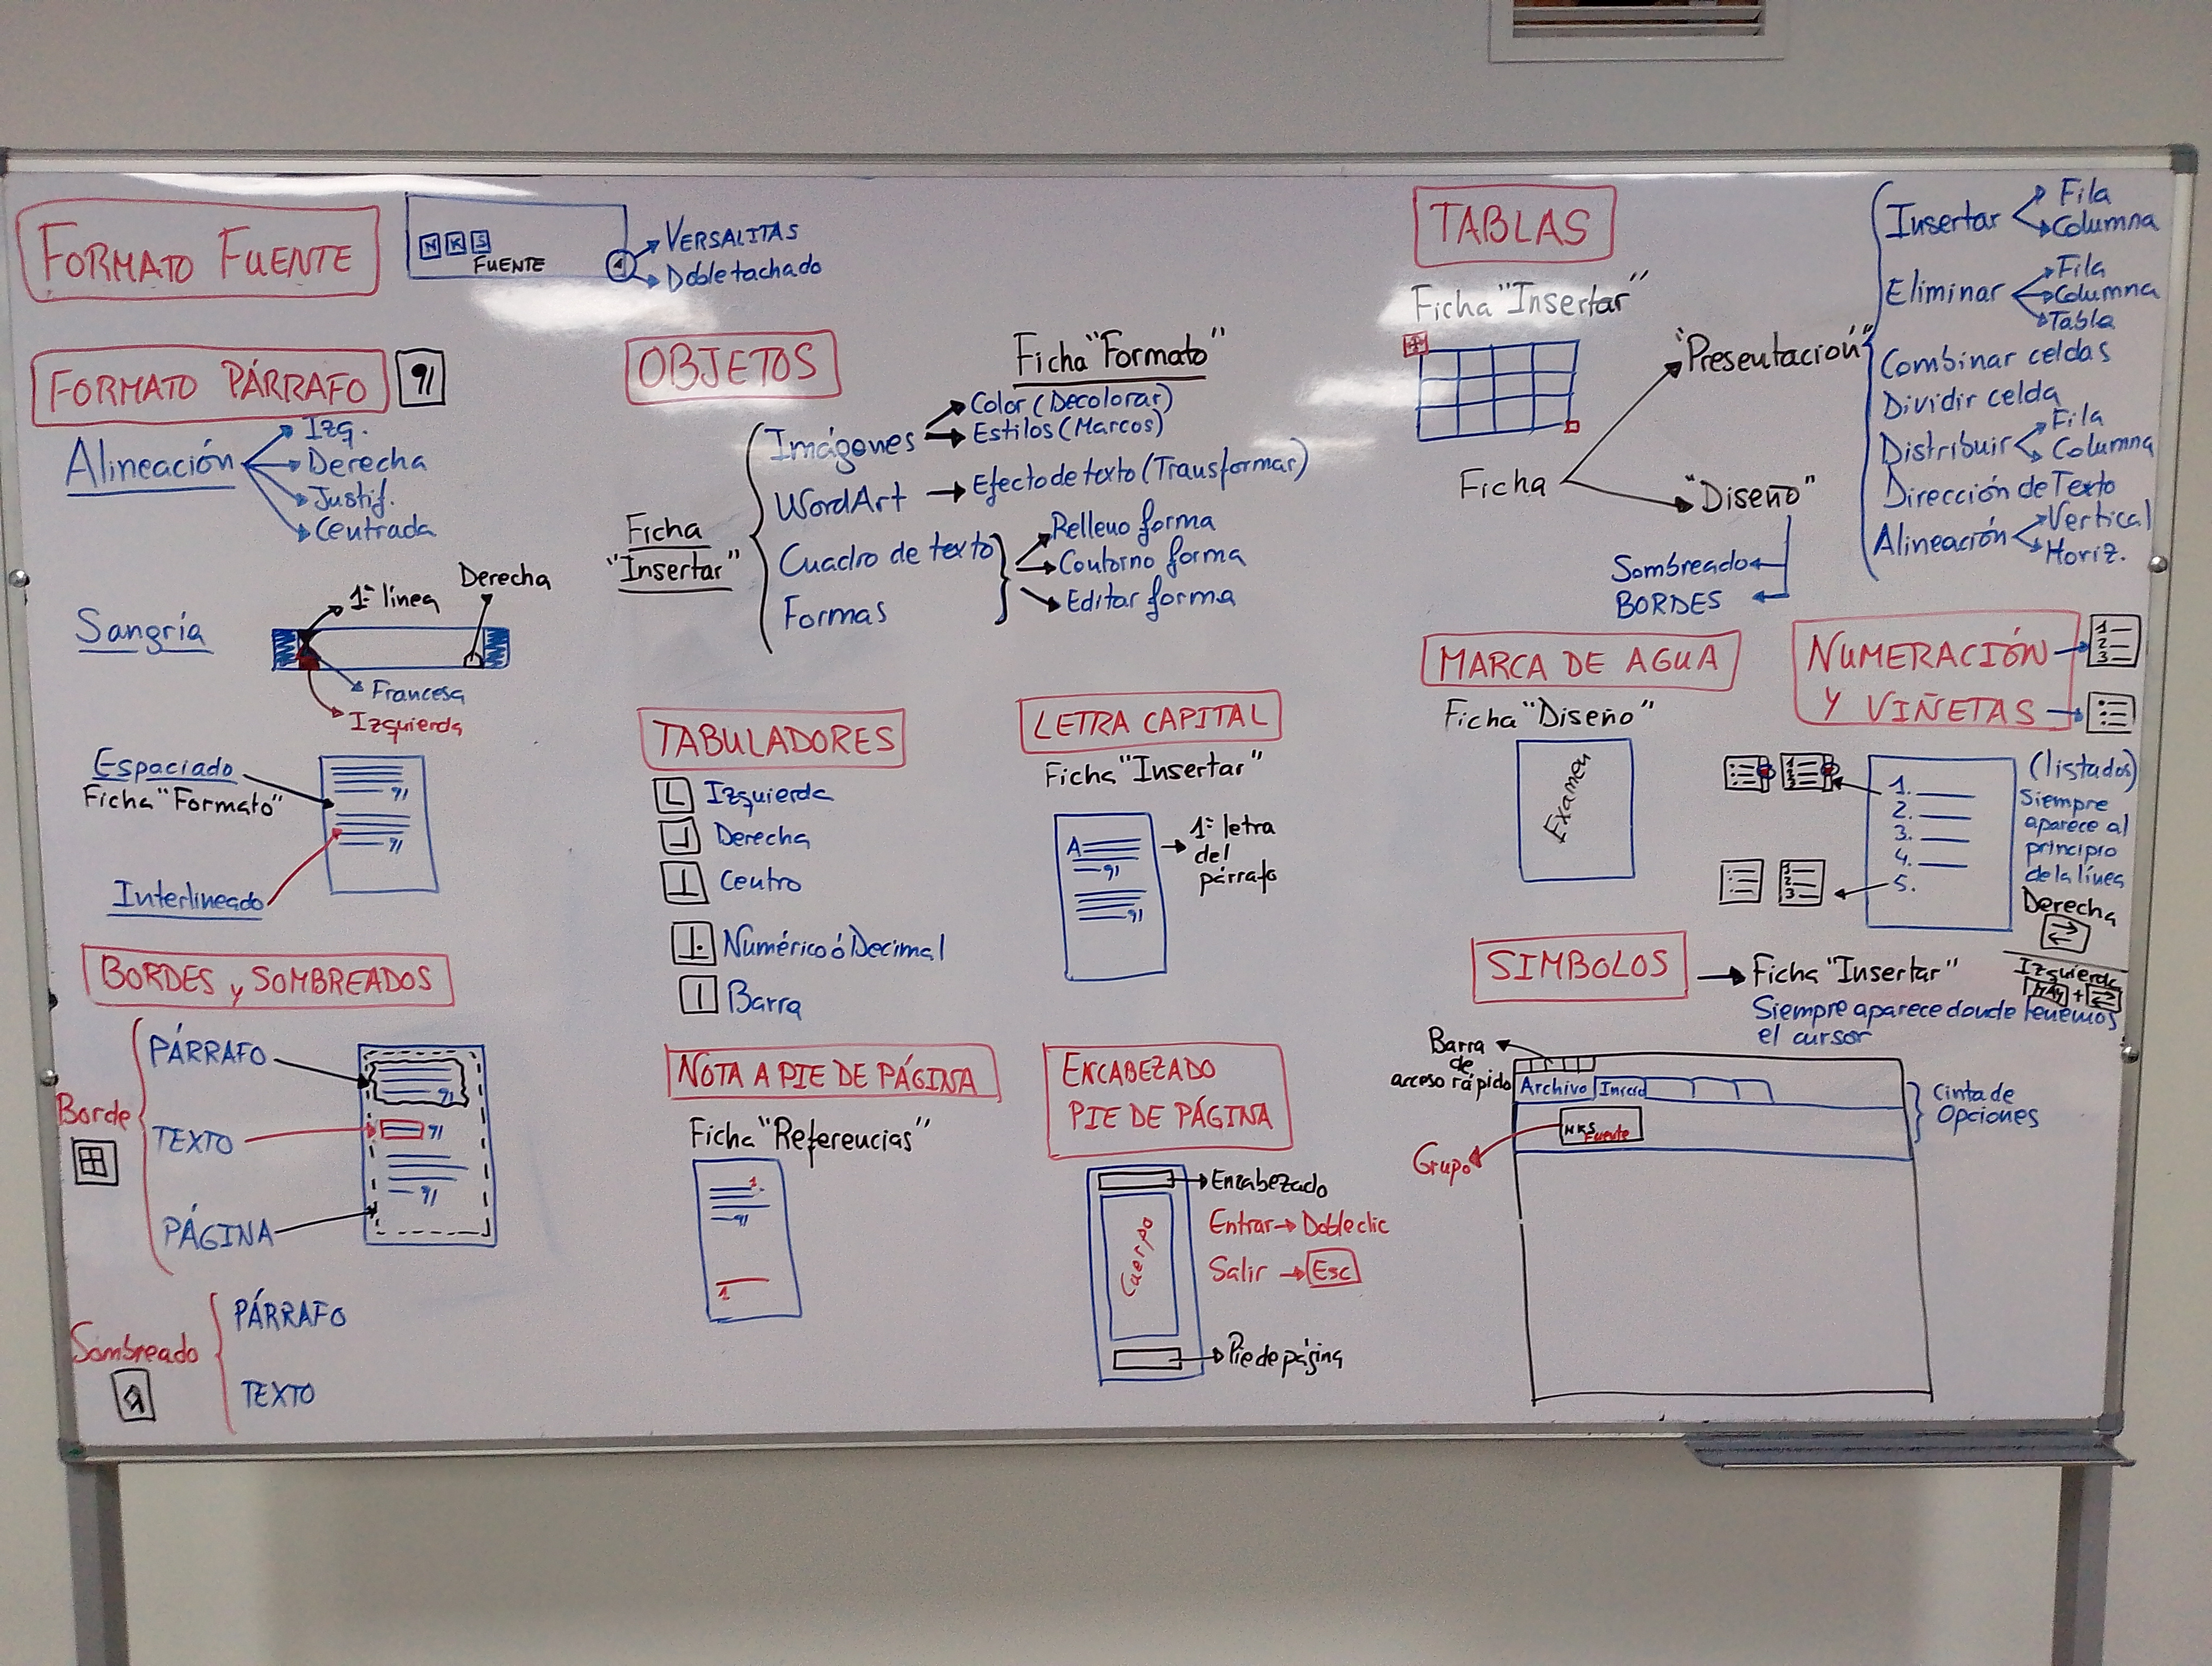 FORMATO FUENTE
N K S
FUENTE
VERSALITAS
Doble tachado
FORMATO PÁRRAFO
Alineación
Izq.
Derecha
Justif.
Centrada
Sangría
1ª línea
Derecha
Francesa
Izquierda
Espaciado
Ficha "Formato"
Interlineado
BORDES y SOMBREADOS
Borde
PÁRRAFO
TEXTO
PÁGINA
Sombreado
PÁRRAFO
TEXTO
OBJETOS
Ficha "Formato"
Ficha
"Insertar"
Imágenes
Color (Decolorar)
Estilos (Marcos)
WordArt
Efecto de texto (Transformar)
Cuadro de texto
Formas
Relleno forma
Contorno forma
Editar forma
TABULADORES
Izquierda
Derecha
Centro
Numérico ó Decimal
Barra
LETRA CAPITAL
Ficha "Insertar"
A
1ª letra
del
párrafo
NOTA A PIE DE PÁGINA
Ficha "Referencias"
1
1
ENCABEZADO
PIE DE PÁGINA
Encabezado
Cuerpo
Entrar → Doble clic
Salir → Esc
Pie de página
TABLAS
Ficha "Insertar"
Ficha
"Presentación"
Insertar
Fila
Columna
Eliminar
Fila
Columna
Tabla
Combinar celdas
Dividir celda
Distribuir
Fila
Columna
Dirección de Texto
Alineación
Vertical
Horiz.
"Diseño"
Sombreado
BORDES
MARCA DE AGUA
Ficha "Diseño"
Examen
NUMERACIÓN
Y VIÑETAS
1
2
3
1
2
3
1
2
3
1.
2.
3.
4.
5.
(listados)
Siempre
aparece al
principio
de la línea
Derecha
Izquierda
MAY +
SIMBOLOS → Ficha "Insertar"
Siempre aparece donde tenemos
el cursor
Barra
de
acceso rápido
Archivo Inicio
NKS
Fuente
Grupo
Cinta de
Opciones